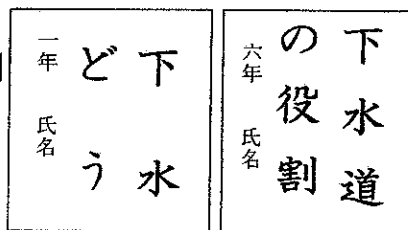 下水道
の役割
六年 氏名
下水
どう
一年 氏名